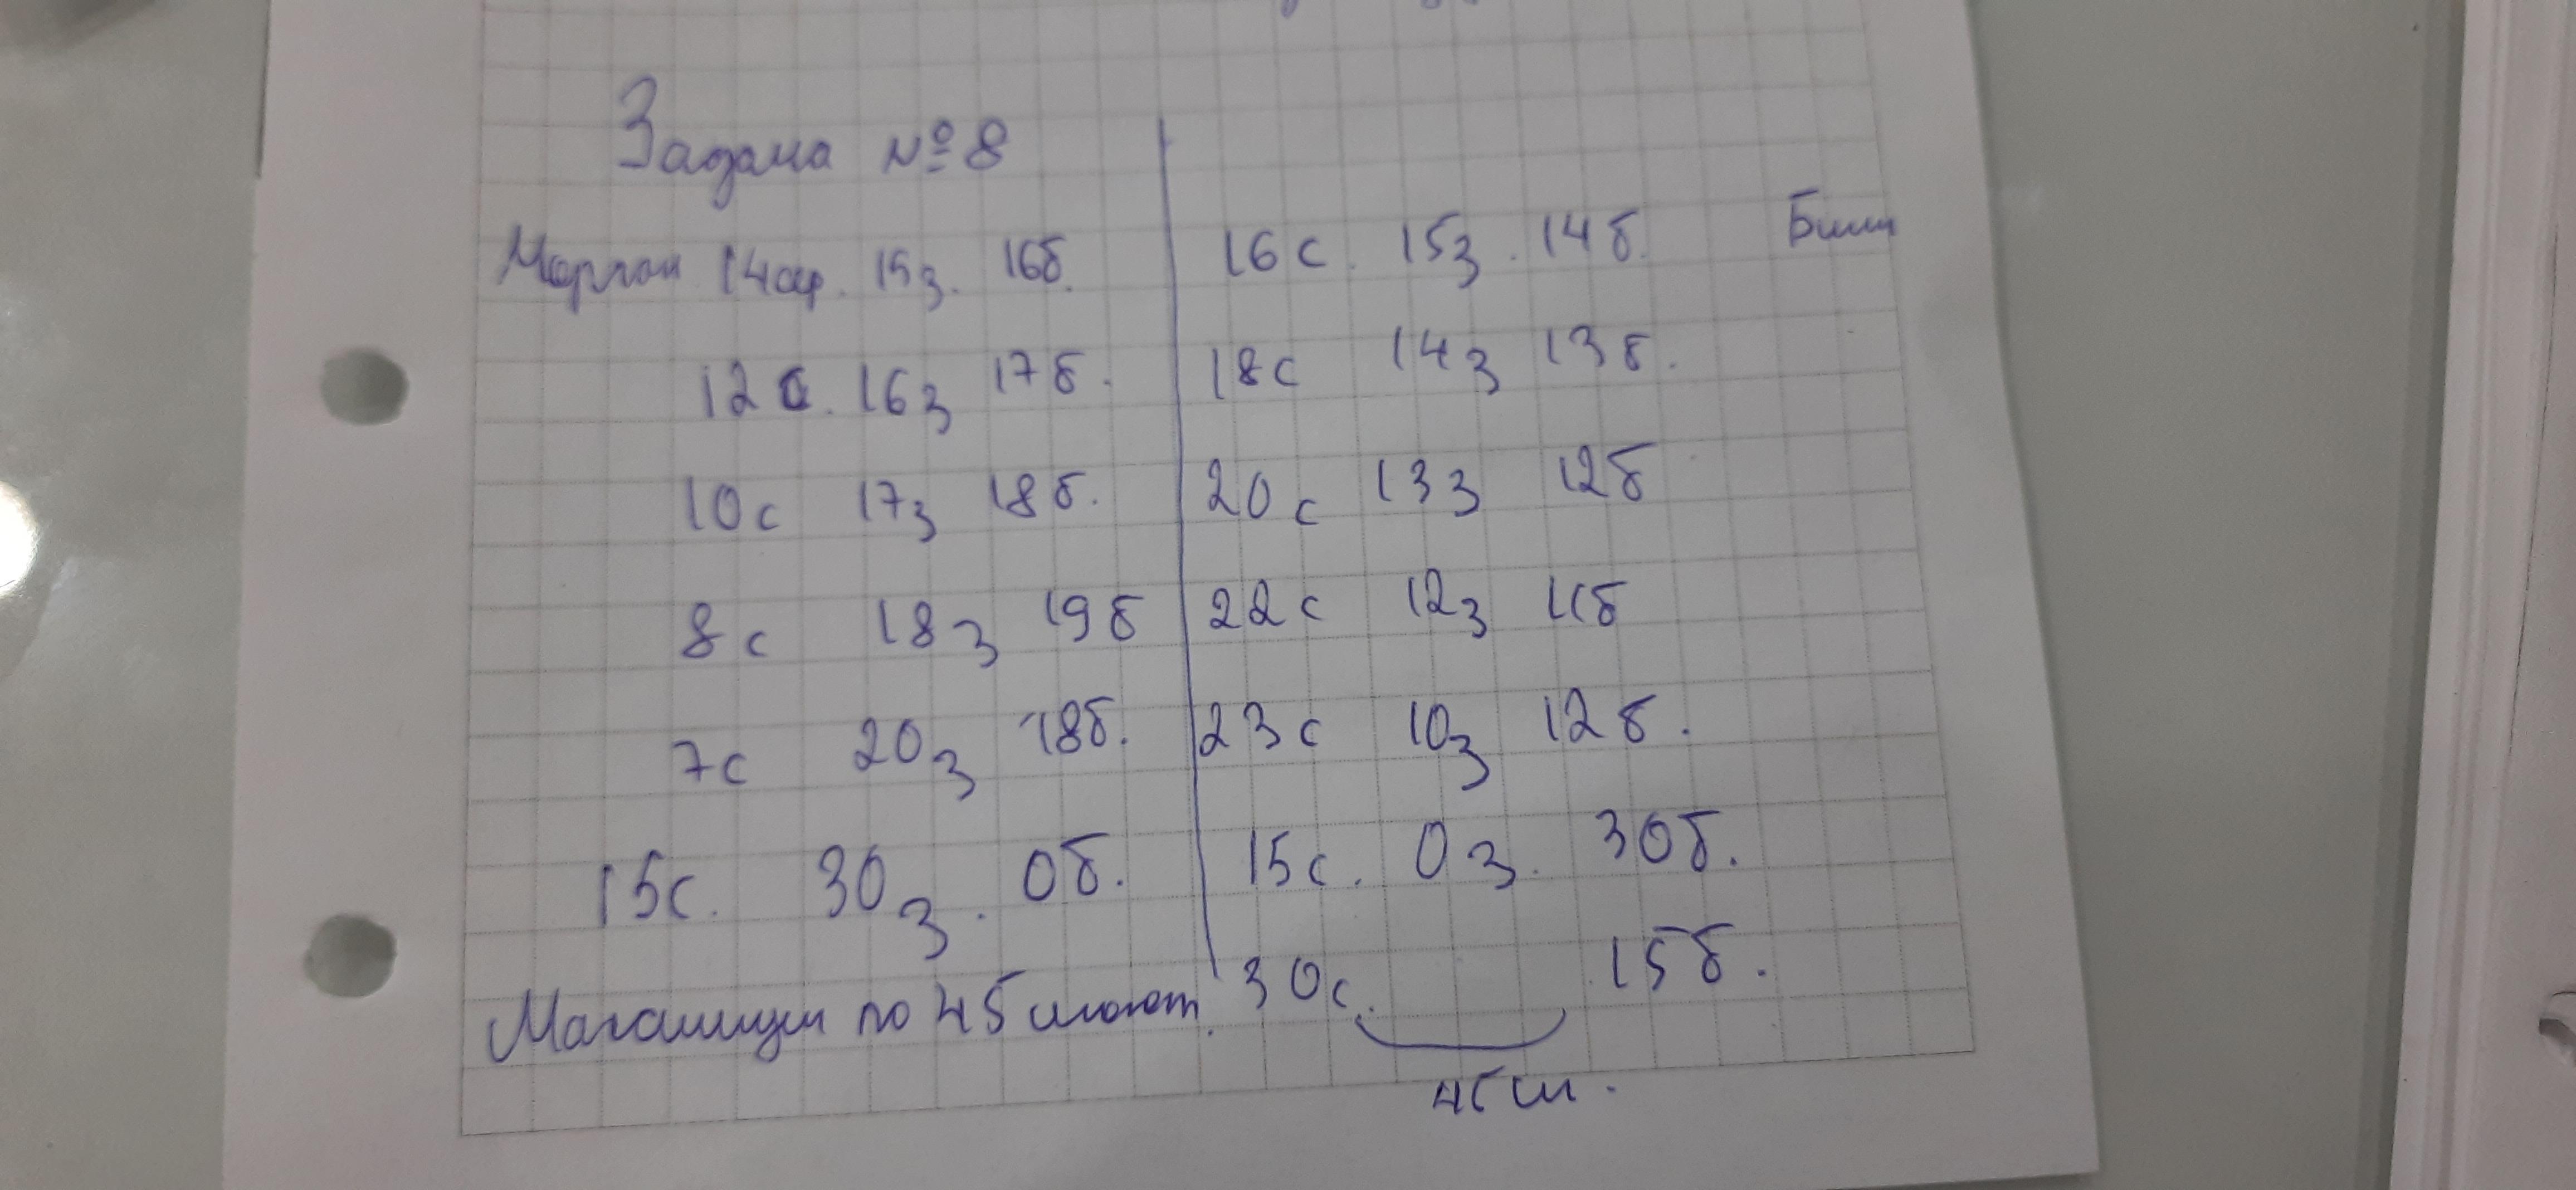 Задача №8
Морган 14ср. 15з. 16б. 16с. 15з. 14б. Билл
12с. 16з 17б. 18с 14з 13б.
10с 17з 18б. 20с 13з 12б
8с 18з 19б 22с 12з 11б
7с 20з 18б. 23с 10з 12б.
15с. 30з. 0б. 15с. 0з. 30б.
по 45 30с. 15б.
45ш.